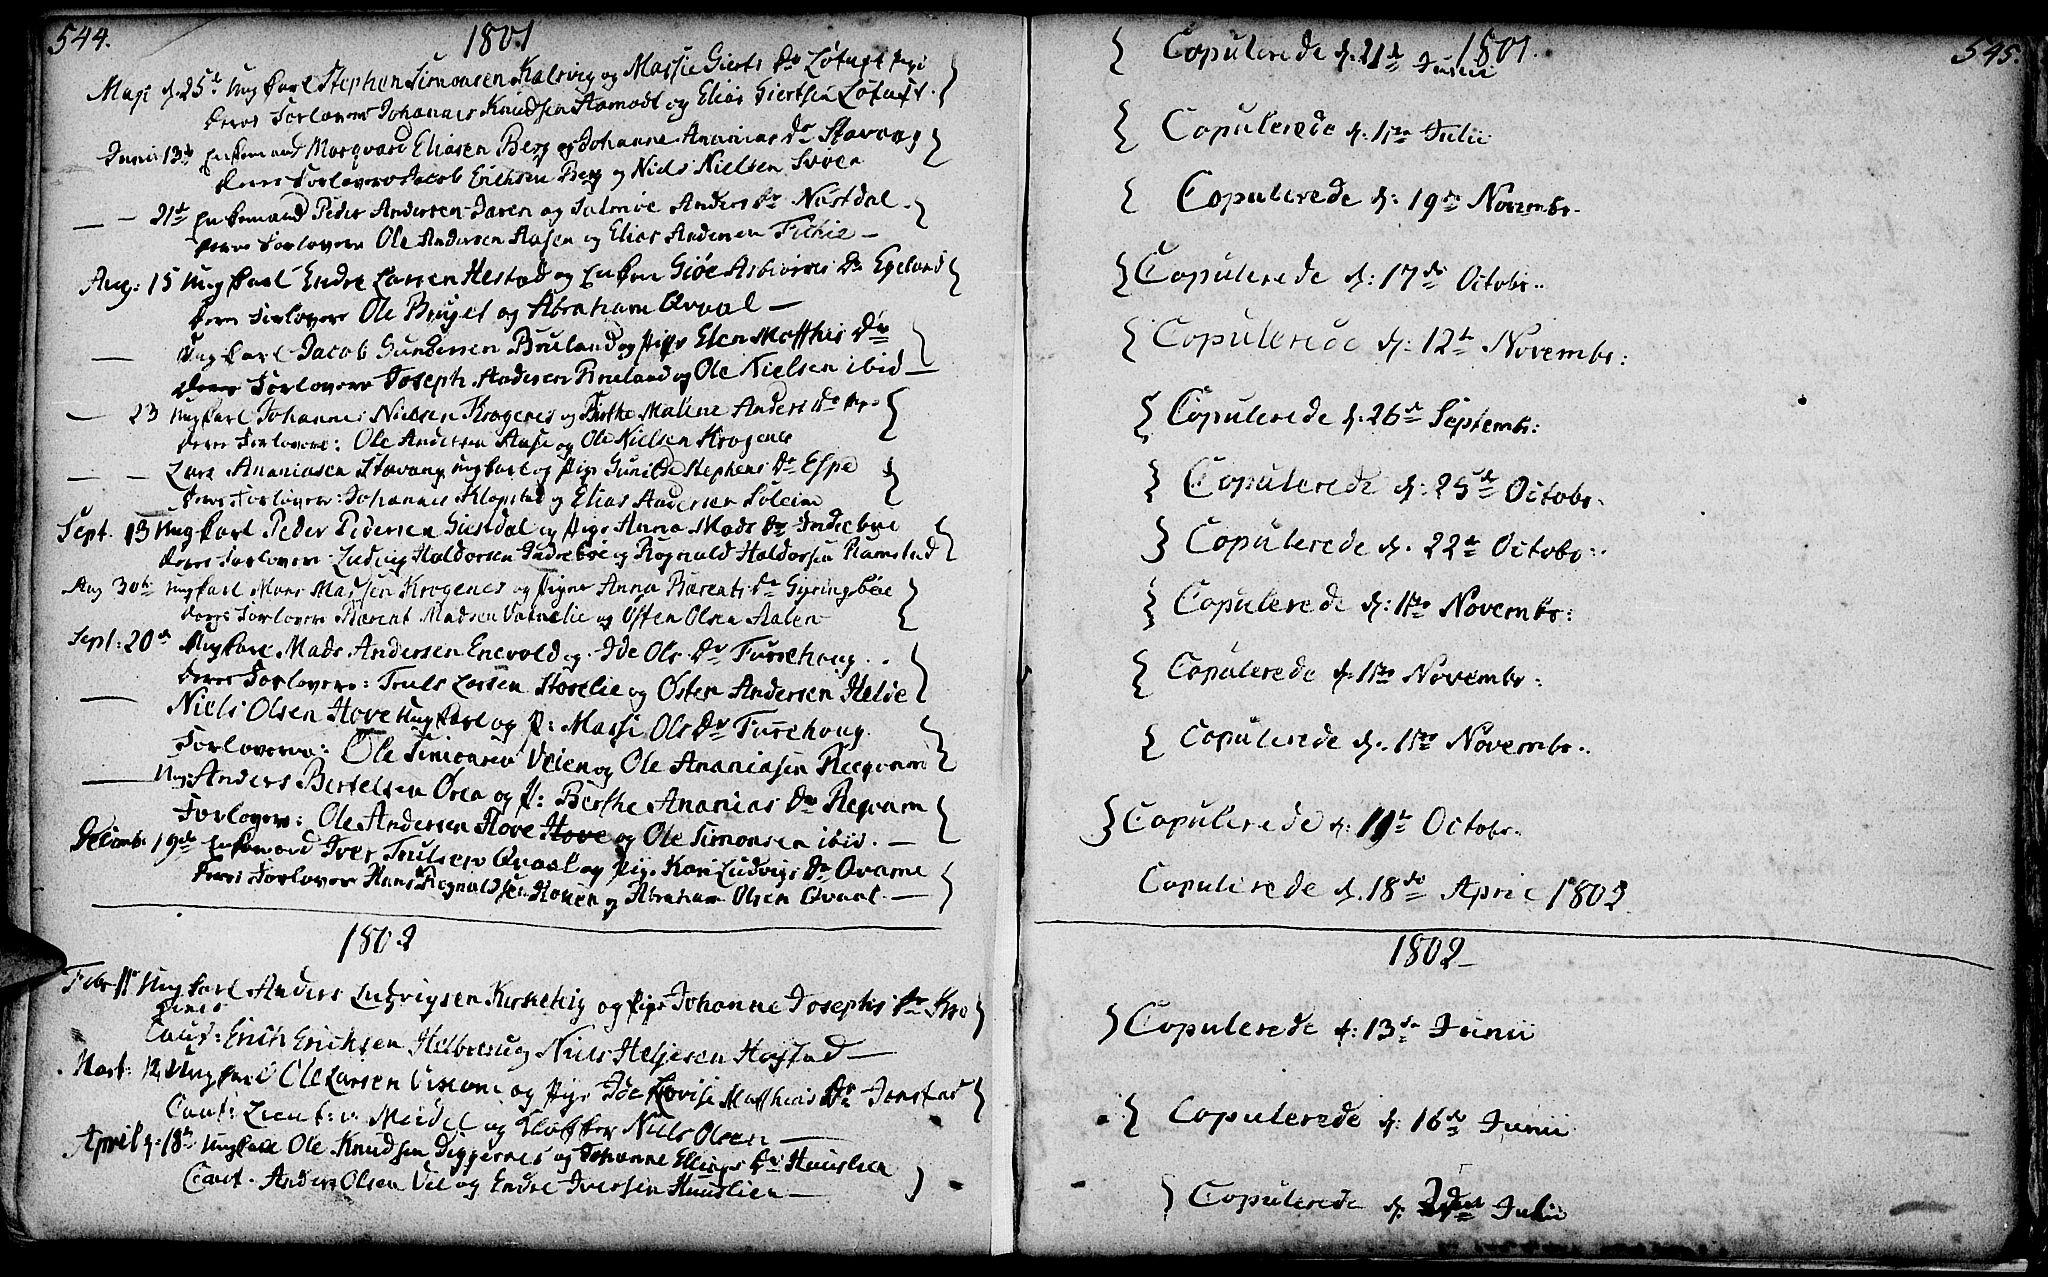 544.
1801
Maji d. 25de Ungkarl Stephen Simonsen Kalsvig og Massie Gierts Dr Løtuft pige
Deres Forlovere Johannes Knudsen Aamodt og Elias Giertsen Løtuft.
Junii 13de Enkemand Marqvard Eliasen Berg og Johanne Ananias Dr Stavang
Deres Forlovere Jacob Erichsen Berg og Niels Nielsen Svoen
— — 21de Enkemand Peder Andersen Jaren og Salmoe Anders Dr Nøstdal
Deres Forlovere Ole Andersen Aasen og Elias Andersen Fichie —
Aug: 15 Ungkarl Endre Larsen Hestad og Enken Giøe Asbiørns Dr Egeland
Deres Forlovere Ole Bruget og Abraham Qvaal —
— Ungkarl Jacob Gundersen Bruland og pige Elen Matthis Dr
Deres Forlovere Joseph Andersen Bruland og Ole Nielsen ibid —
— 23 Ungkarl Johannes Nielsen Krogenes og Birthe Malene Anders Dr
Deres Forlovere: Ole Andersen Aase og Ole Nielsen Krogenes
— — Lars Ananiasen Stavang Ungkarl og pige Gunilde Stephens Dr Espe
Deres Forlovere: Johannes Klopstad og Elias Andersen Soleim
Sept. 13 Ungkarl Peder Pedersen Giestdal og pige Anna Mads Dr Indrebøe
Deres Forlovere: Ludvig Haldorsen Indrebøe og Rognald Haldorsen Ramstad
Aug 30te Ungkarl Mons Madsen Krogenes og Pigen Anna Barents Dr Gyringbøe
Deres Forlovere Barent Madsen Vatnelie og Østen Olsen Aalen
Sept: 20de Ungkarl Mads Andersen Enevold og Ide Ols Dr Furrehoug
Deres Forlovere: Truls Larsen Storelie og Østen Andersen Helde
— Niels Olsen Hove Ungkarl og P: Massi Ols Dr Furrehoug.
Forlovere: Ole Simonsen Veien og Ole Ananiasen Reqvam
— Ung: Anders Bertelsen Øren og P: Berthe Ananias Dr Reqvam
Forlovere: Ole Andersen Hove Hove og Ole Simonsen ibid. —
Decemb: 19de Enkemand Iver Trulsen Qvaal og pige Kari Ludvigs Dr Qvame
Deres Forlovere Hans Rognaldsen Houen og Abraham Olsen Qvaal —
1802
Febr 11te Ungkarl Anders Ludvigsen Kirkehig og pige Johanne Josephs Dr Kro
genes
Caut: Erich Erichsen Helbrerug Niels Heljesen Høystad —
Mart: 12 Ungkarl Ole Larsen Usteme og pige Ide Lovise Matthias Dr Jonstad
Caut: Lieut: v: Meidel og Klokker Niels Olsen —
April d: 18de Ungkarl Ole Knudsen Diggernes og Johanne Ellings Dr Huuslien
Caut. Anders Olsen Vie og Endre Iversen Huuslien —
1801.
545.
Copulerede d. 21de Junii
Copulerede d: 11te Julii
Copulerede d: 19de Novembr.
Copulerede d: 17de Octobr.
Copulerede d: 12te Novembr:
Copulerede d. 26de Septembr:
Copulerede d: 25de Octobr.
Copulerede d. 22de Octobr.
Copulerede d: 1ste Novembr:
Copulerede d. 1ste Novembr.
Copulerede d. 1ste Novembr.
Copulerede d: 11te Octobr.
Copulerede d. 18de April 1802
1802
Copulerede d: 13de Junii
Copulerede d: 16de Junii
Copulerede d. 2den Julii